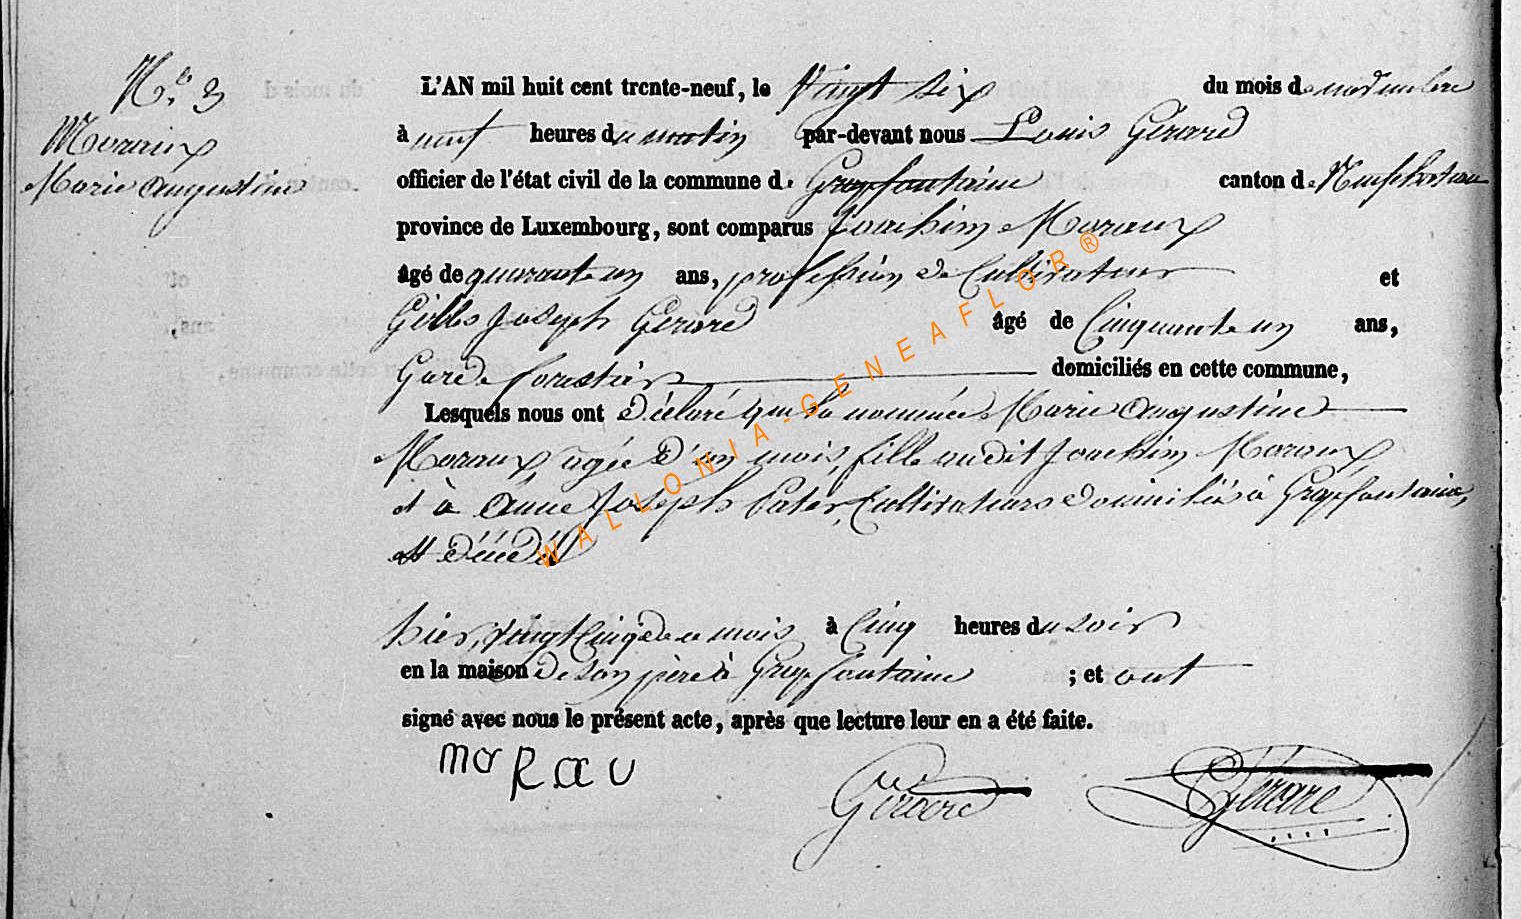 N.° 3
Moraux
Marie Augustine
L'AN mil huit cent trente-neuf, le Vingt six du mois de novembre
à neuf heures du matin par-devant nous Louis Gérard
officier de l'état civil de la commune de Grapfontaine canton de Neufchateau
province de Luxembourg, sont comparus Joachim Moraux
âgé de quarante un ans, profession de Cultivateur et
Gilles Joseph Gerard âgé de Cinquante un ans,
Garde forestier domiciliés en cette commune,
Lesquels nous ont déclaré que la nommée Marie Augustine
Moraux, agée d'un mois, fille au dit Joachim Moraux
et à Anne Joseph Pater, Cultivateurs domiciliés à Grapfontaine,
est décédé
hier, vingt Cinq de ce mois à Cinq heures du soir
en la maison de son père à Grapfontaine ; et ont
signé avec nous le présent acte, après que lecture leur en a été faite.
moRau
Gérard
Gérard
WALLONIA-GENEAFLOR®